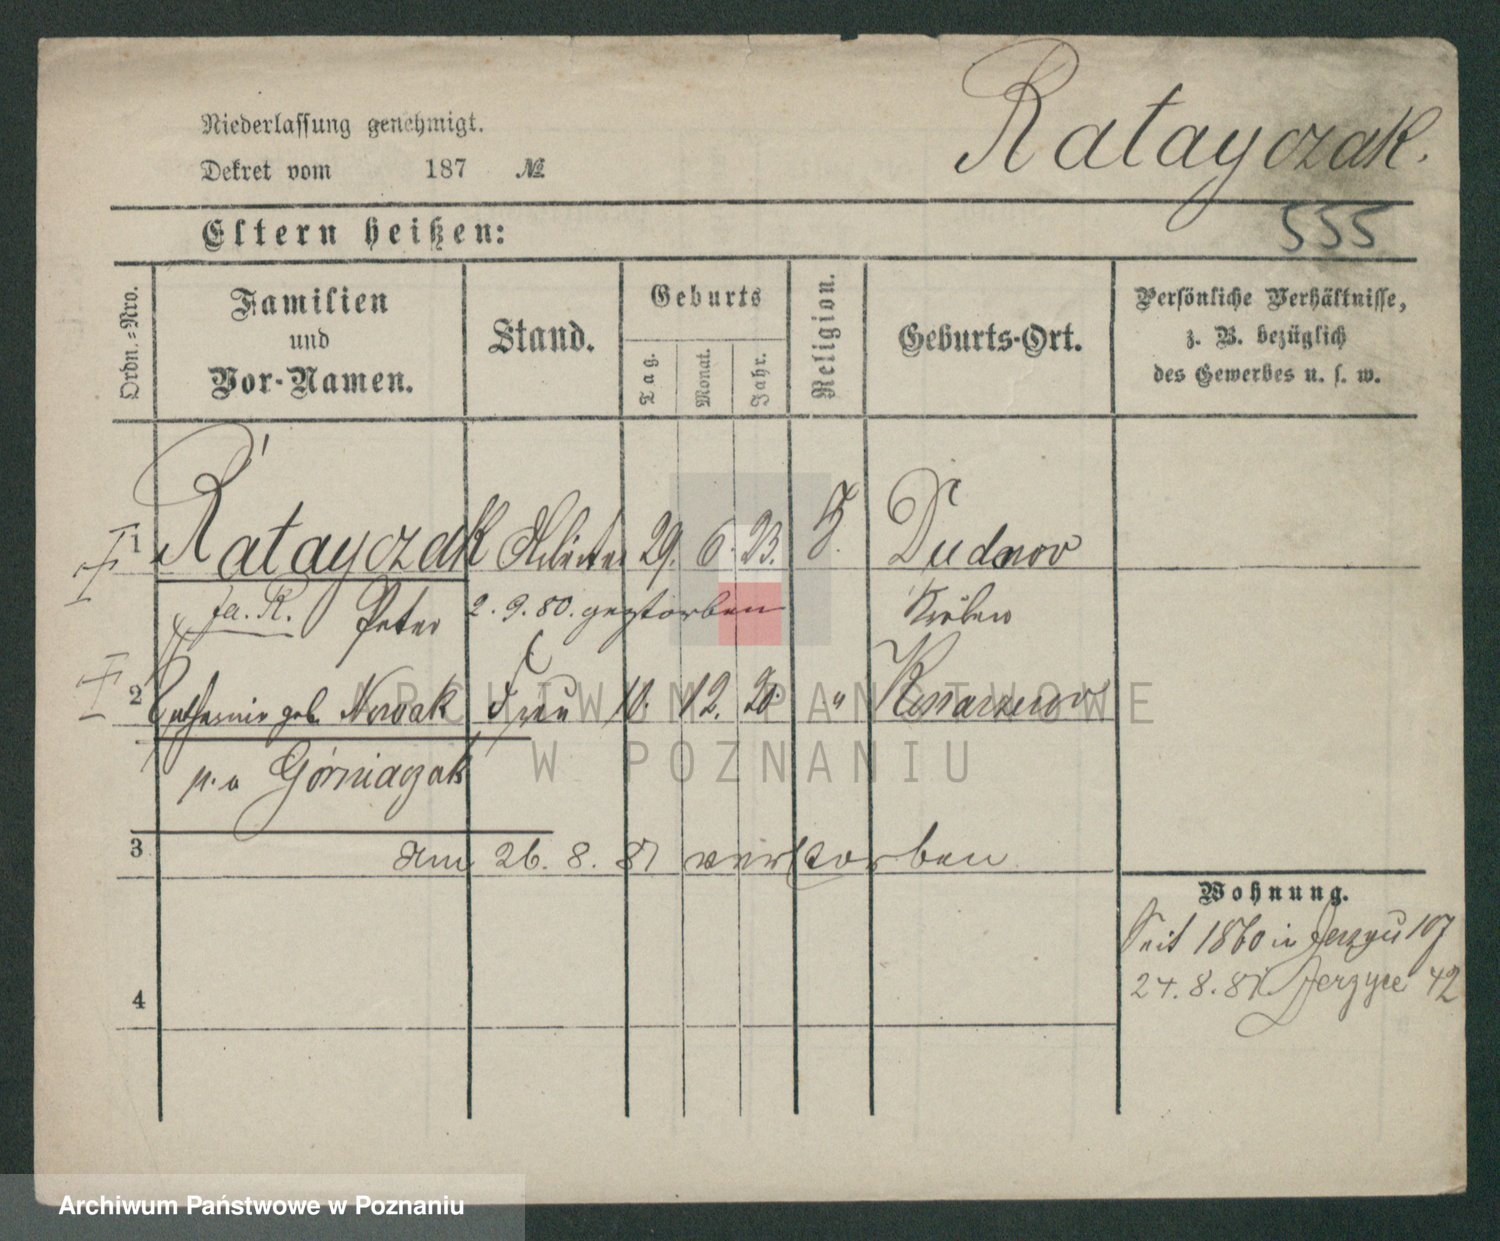 Ratayczak.
Niederlassung genehmigt.
Dekret vom 187 №
555
Eltern heißen:
Ordn.=Nro.
Familien
und
Vor-Namen.
Stand.
Geburts
Tag.
Monat.
Jahr.
Religion.
Geburts-Ort.
Persönliche Verhältnisse,
z. B. bezüglich
des Gewerbes u. s. w.
1 Ratayczak 29. 6. 23. Dudnov
Peter 2.9.80. gestorben Kröben
2 geb. Nowak Frau 10. 12. 20. "
Górniaczak
3 Am 26. 8. 87 verstorben
Wohnung.
Seit 1860 in Jerzyce 107
24. 8. 87. Jerzyce 42
4
ARCHIWUM PAŃSTWOWE
W POZNANIU
Archiwum Państwowe w Poznaniu